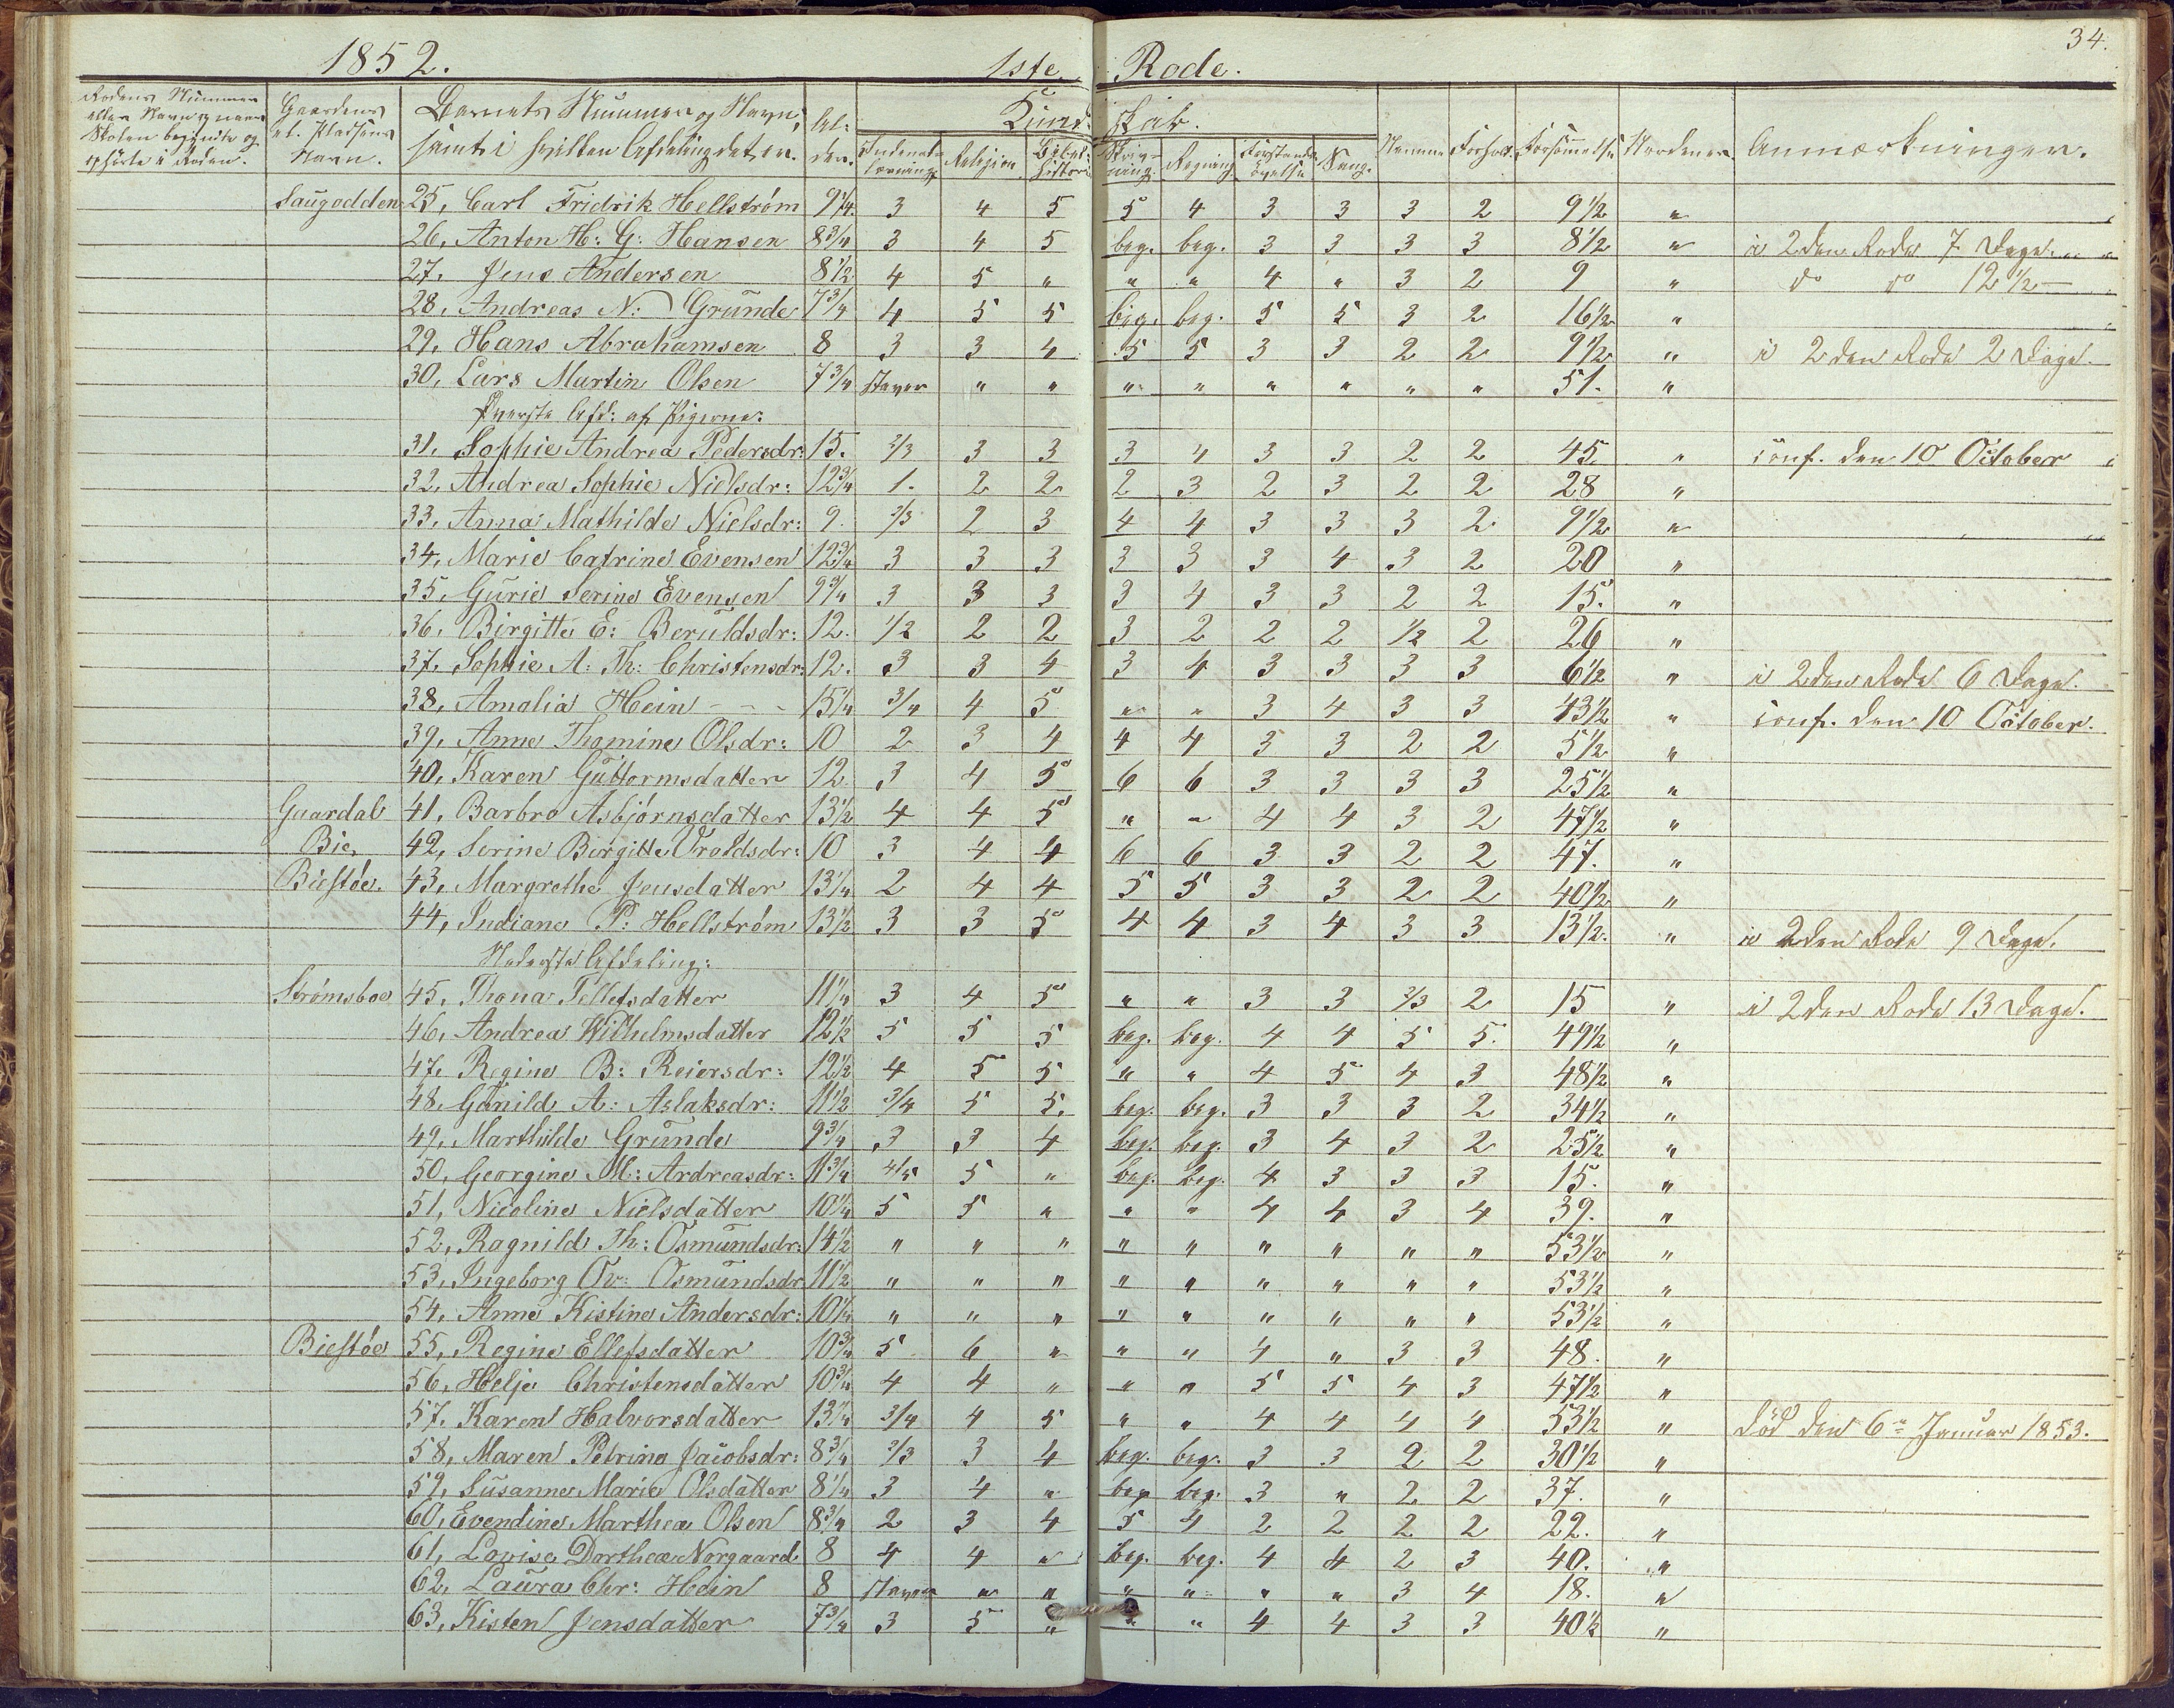 34.
1852. 1ste Rode.
Rodens Nummer eller Navn og naar Skolen begyndte og ophørte i Roden. Gaardens el. Pladsens Navn. Barnets Nummer og Navn, samt i hvilken Afdeling det er. Al- der. Kund- skab. Indenadslæsning Religion Bibelhistorie Skrivning Regning Forstandsøvelse Sang. Nemme Forhold Forsømmelse Anmærkninger.
Saugodden 25, Carl Fridrik Hellstrøm 9 1/4 3 4 5 5 4 3 3 3 2 9 1/2 "
26, Anton H: G: Hansen 8 3/4 3 4 5 beg. beg. 3 3 3 3 8 1/2 " i 2den Rode 7 Dage.
27, Jens Andersen 8 1/2 4 5 " " " 4 " 3 2 9 " do do 12 1/2 —
28, Andreas N: Grunde 7 3/4 4 5 5 beg. beg. 5 5 3 2 16 1/2 "
29, Hans Abrahamsen 8 3 3 4 5 5 3 3 2 2 9 1/2 " i 2den Rode 2 Dage.
30, Lars Martin Olsen 7 3/4 staver " " " " " " " " 51. "
Øverste Afd: af Pigerne:
31, Sophie Andrea Pedersdr: 15. 2/3 3 3 3 4 3 3 2 2 45. " conf. den 10 October
32, Andrea Sophie Nielsdr: 12 3/4 1. 2 2 2 3 2 3 2 2 28 "
33, Anna Mathilde Nielsdr: 9. 2/3 2 3 4 4 3 3 3 2 9 1/2 "
34, Marie Catrine Evensen 12 3/4 3 3 3 3 3 3 4 3 2 20 "
35, Gurie Serine Evensen 9 3/4 3 3 3 3 4 3 3 2 2 15. "
36, Birgitte E: Beruldsdr: 12. 1/2 2 2 3 2 2 2 1/2 2 26 "
37, Sophie A: Th: Christensdr: 12. 3 3 4 3 4 3 3 3 3 6 1/2 " i 2den Rode 6 Dage.
38, Amalia Hein - - - 15 1/4 3/4 4 5 " " 3 4 3 3 43 1/2 " conf. den 10 October.
39, Anne Thomine Olsdr: 10 2 3 4 4 4 3 3 2 2 5 1/2 "
40, Karen Guttormsdatter 12 3 4 5 6 6 3 3 3 3 25 1/2 "
Guardal 41, Barbro Asbjørnsdatter 13 1/2 4 4 5 " " 4 4 3 2 47 1/2 "
Bie, 42, Serine Birgitte Oroldsdr: 10 3 4 4 6 6 3 3 2 2 47. "
Biestøe. 43, Margrethe Jensdatter 13 1/4 2 4 4 5 5 3 3 2 2 40 1/2 "
44, Indiane P: Hellstrøm 13 1/2 3 3 5 4 4 3 4 3 3 13 1/2. " i 2den Rode 9 Dage.
Nederste Afdeling:
Strømsboe 45, Thona Tellefsdatter 11 1/4 3 4 5 " " 3 3 2/3 2 15 " i 2den Rode 13 Dage.
46, Andrea Wilhelmsdatter 12 1/2 5 5 5 beg. beg. 4 4 5 5. 49 1/2 "
47, Regine B: Reiersdr: 12 1/2 4 5 5 " " 4 5 4 3 48 1/2 "
48, Gunild A: Aslaksdr: 11 1/2 3/4 5 5. beg. beg. 3 3 3 2 34 1/2 "
49, Marthilde Grunde 9 3/4 3 3 4 beg. beg. 3 4 3 2 25 1/2 "
50, Georgine M: Ardreasdr: 11 3/4 4/5 5 " beg. beg. 4 3 3 3 15. "
51, Nicoline Nielsdatter 10 1/4 5 5 " " " 4 4 3 4 39. "
52, Ragnild Th: Osmundsdr: 14 1/2 " " " " " " " " " 53 1/2 "
53, Ingeborg Ov: Osmundsdr 11 1/2 " " " " " " " " " 53 1/2 "
54, Anne Kistine Andersdr: 10 1/4 " " " " " " " " " 53 1/2 "
Biestöe 55, Regine Ellefsdatter 10 3/4 5 6 " " " 4 " 3 3 48. "
56, Helje Christensdatter 10 3/4 4 4 " " " 5 5 4 3 47 1/2 "
57, Karen Halvorsdatter 13 1/4 3/4 4 5 " " 4 4 4 4 53 1/2 " død den 6te Januar 1853.
58, Maren Petrine Jacobsdr: 8 3/4 2/3 3 4 beg. beg. 3 3 2 2 30 1/2 "
59, Susanne Marie Olsdatter 8 1/4 3 4 " beg. beg. 3 " 2 2 37. "
60, Evendine Marthea Olsen 8 3/4 2 3 4 5 4 2 2 2 2 22. "
61, Lovise Dorthea Norgaard 8 4 4 " beg. beg. 4 4 2 3 40. "
62, Laura Chr: Hein 8 staver " " " " " " 3 4 18. "
63, Kisten Jensdatter 7 3/4 3 5 " " " 4 4 3 3 40 1/2 "